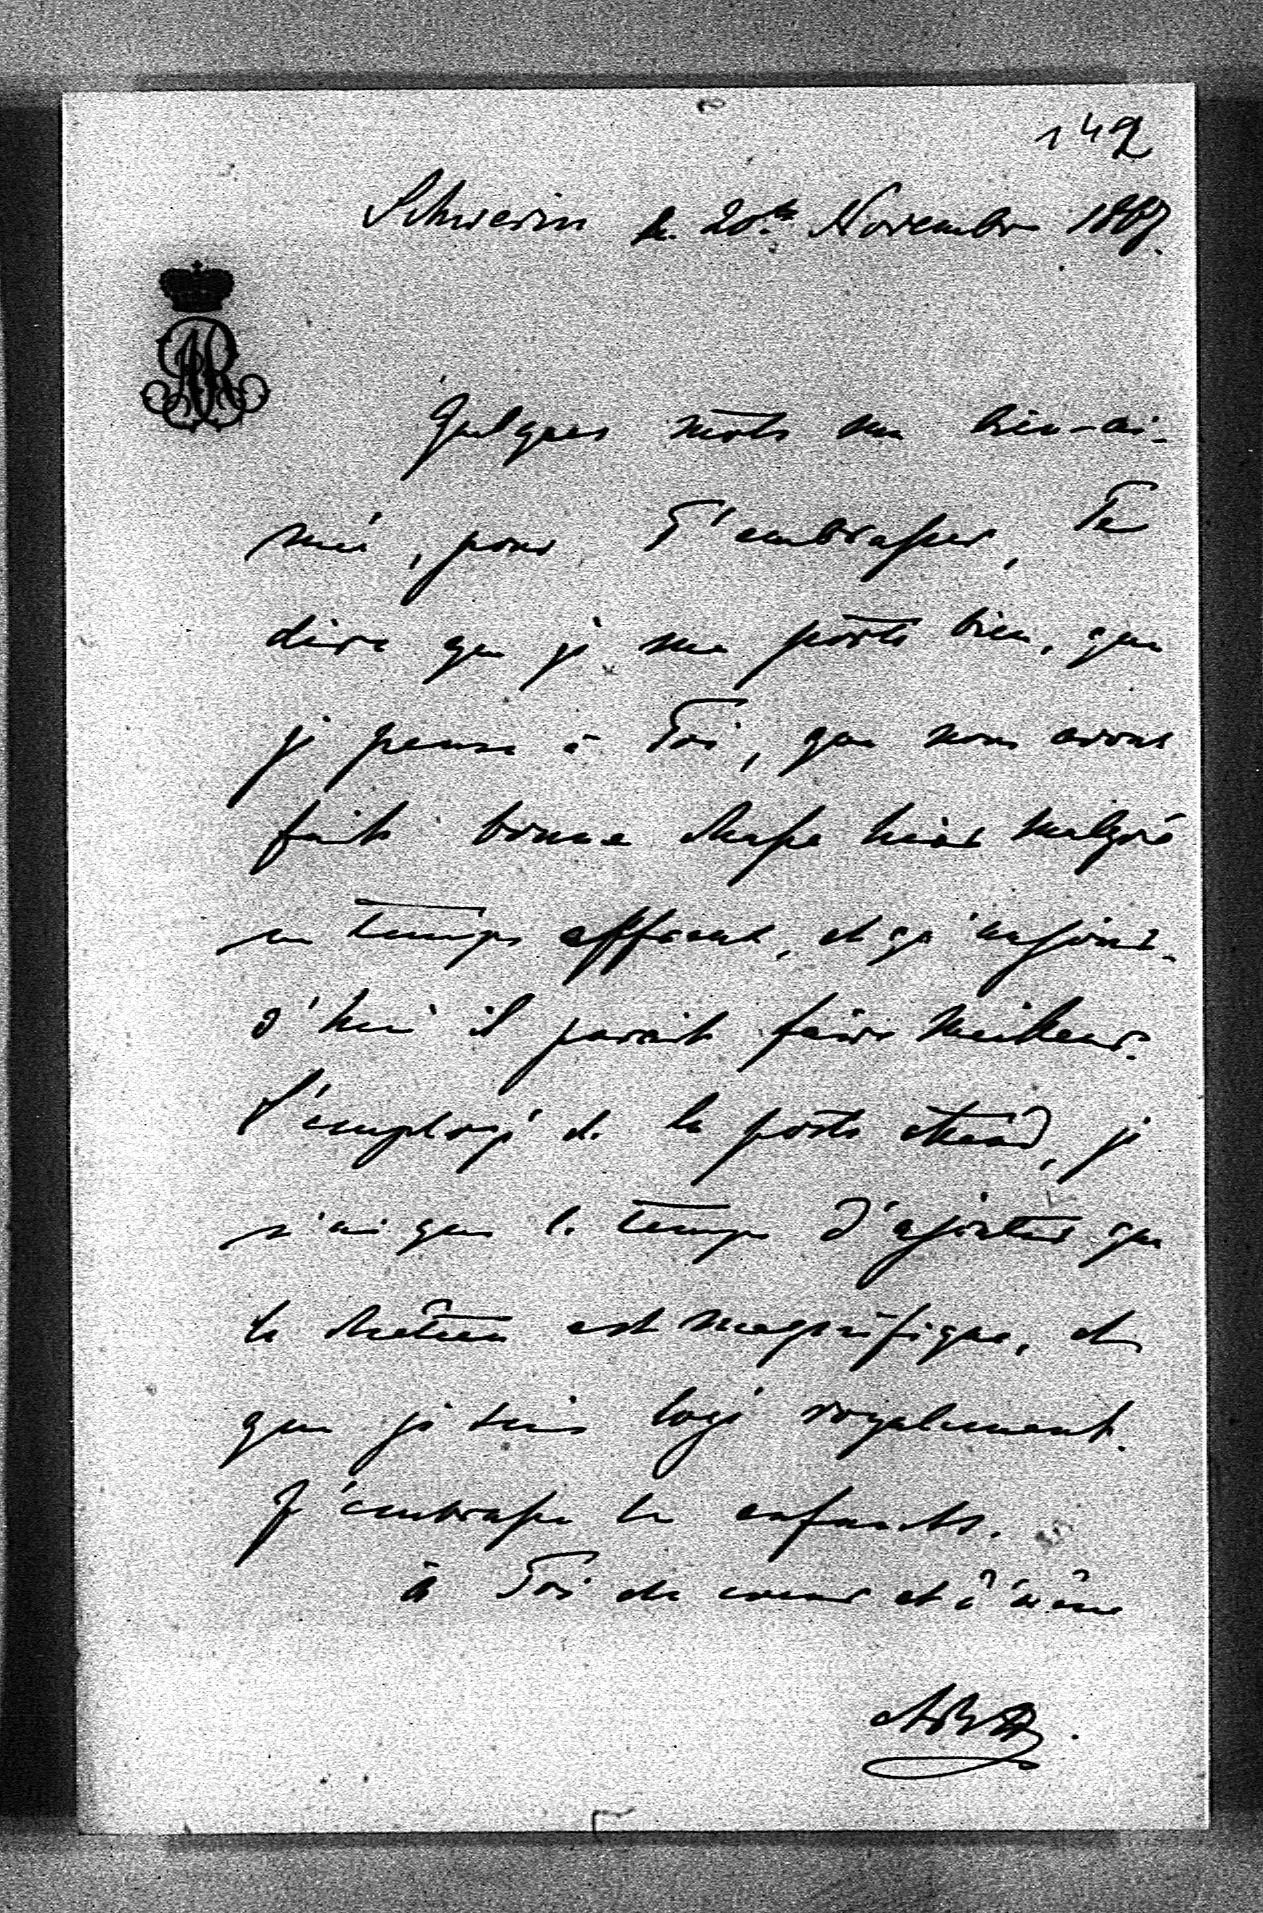 142
Schwerin le 20.te Novembre 1867.
AR
Quelques mots ma bien-ai-
mée, pour T'embrasser, Te
dire que je me porte bien, que
je pense à Toi, que nous avons
fait bonne chasse hier malgré
un temps affreux, et qu'aujour-
d'hui il parait faire meilleur.
L'employé de la poste attend, je
n'ai que le temps d'ajouter que
le château est magnifique, et
que je suis logé royalement.
J'embrasse les enfants.
à Toi de coeur et d'âme